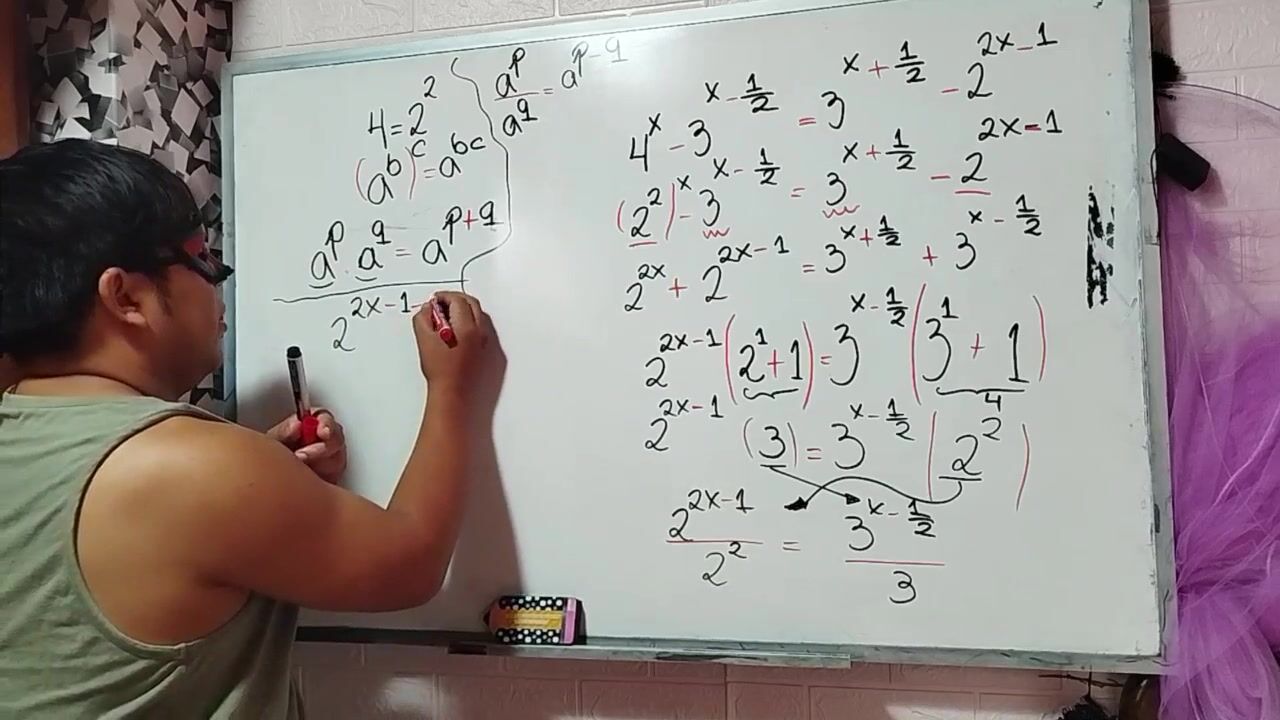 4 = 2^2
(a^b)^c = a^{bc}
a^p · a^q = a^{p+q}
2^{2x-1-
a^p/a^q = a^{p-q}
4^x - 3^{x-1/2} = 3^{x+1/2} - 2^{2x-1}
(2^2)^x - 3^{x-1/2} = 3^{x+1/2} - 2^{2x-1}
2^{2x} + 2^{2x-1} = 3^{x+1/2} + 3^{x-1/2}
2^{2x-1} (2^1 + 1) = 3^{x-1/2} (3^1 + 1)
4
2^{2x-1} (3) = 3^{x-1/2} (2^2)
2^{2x-1}/2^2 = 3^{x-1/2}/3